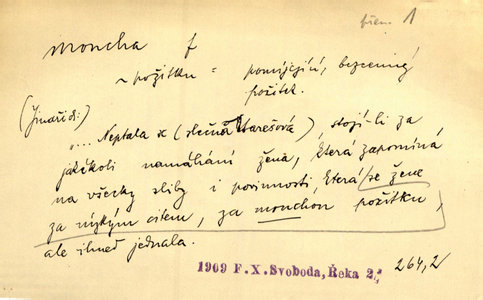 břem. 1
moncha f
~ požitku = pomíjející, bezcenný
požitek.
(Jindřich:)
„... Neptala se (slečna Marešová) stojí-li za
jakékoli namáhání žena, která zapomíná
na všecky sliby i povinnosti, která se žene
za nízkým cílem, za monchou požitku,
ale ihned jednala.
1909 F. X. Svoboda, Řeka 2,
264,2